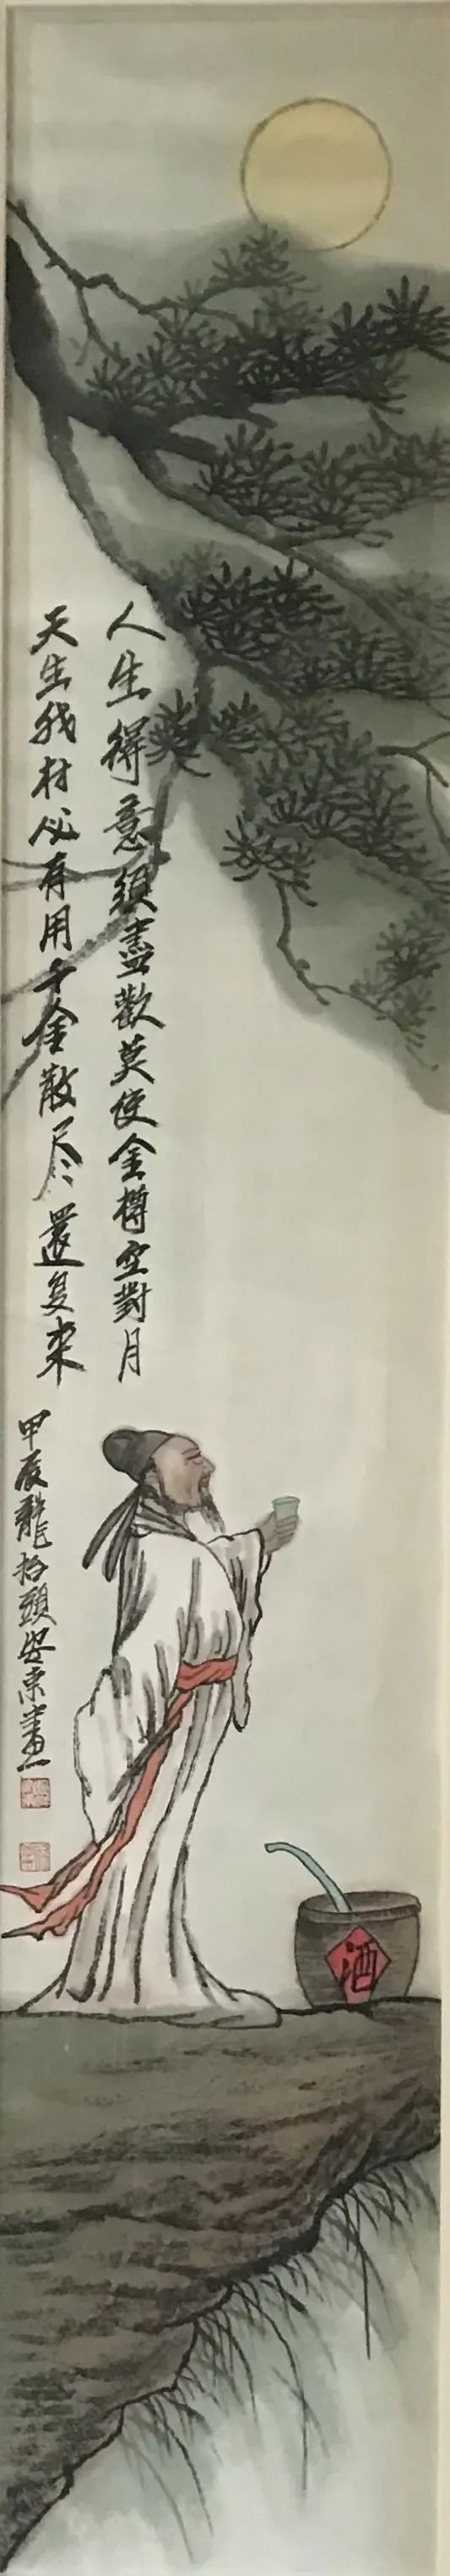 人生得意須盡歡莫使金樽空對月
天生我材必有用千金散尽還复来
甲辰龍抬頭安東畫
酒